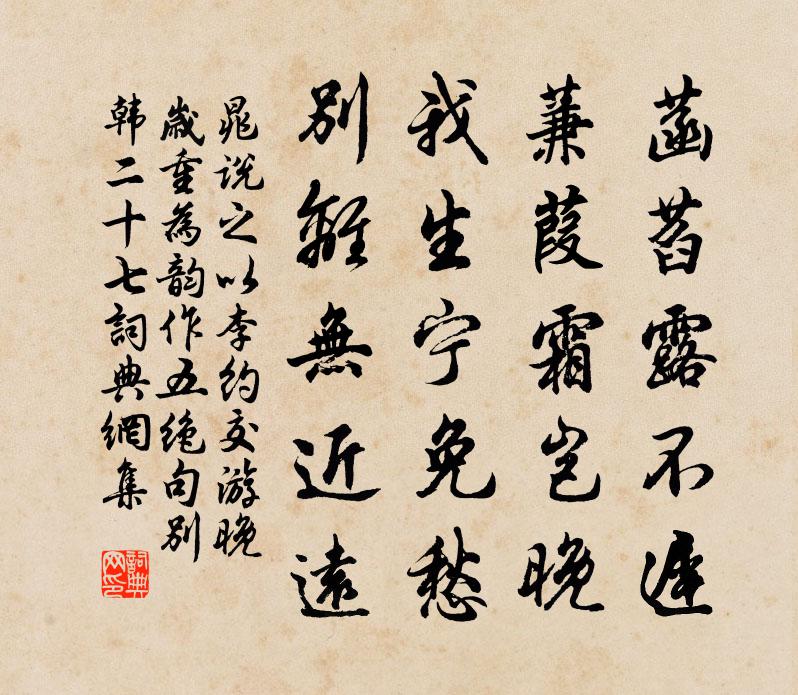 菡萏露不遲
蒹葭霜豈晚
我生宁免愁
別離無近遠
晁说之以李约交游晚
歲重為韵作五绝句别
韩二十七詞典網集
詞典网印